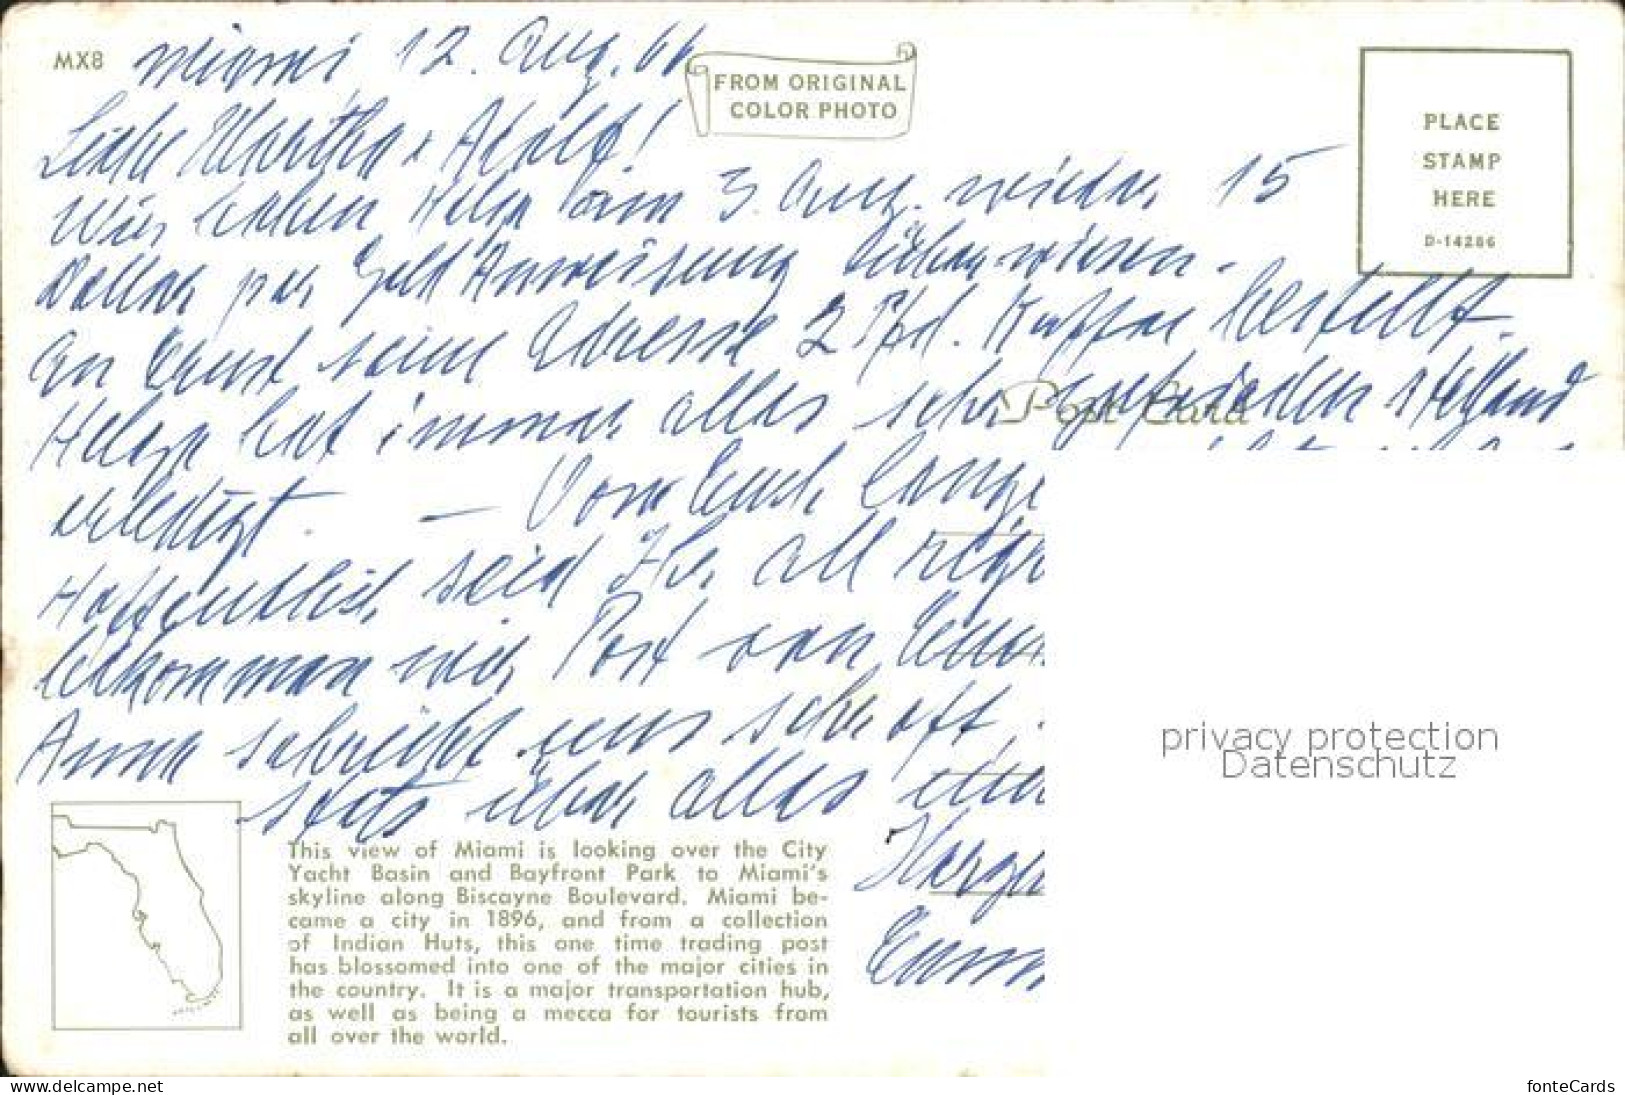 MX8
Miami, 12. Aug. 66
FROM ORIGINAL
COLOR PHOTO
PLACE
STAMP
HERE
D-14286
Liebe Martha & Adolf!
Wir haben Helga am 3. Aug. wieder 15
Dollar per Geld Anweisung überwiesen.
An Ernst seine Adresse 2 Pfd. Kaffee bestellt.
Post Card
Helga hat immer alles sehr
erledigt. — Von Euch lange
Hoffentlich seid Ihr all
bekommen wir Post von
Anna schreibt uns sehr oft
stets über alles
This view of Miami is looking over the City
Yacht Basin and Bayfront Park to Miami's
skyline along Biscayne Boulevard. Miami be-
came a city in 1896, and from a collection
of Indian Huts, this one time trading post
has blossomed into one of the major cities in
the country. It is a major transportation hub,
as well as being a mecca for tourists from
all over the world.
privacy protection
Datenschutz
www.delcampe.net
fonteCards